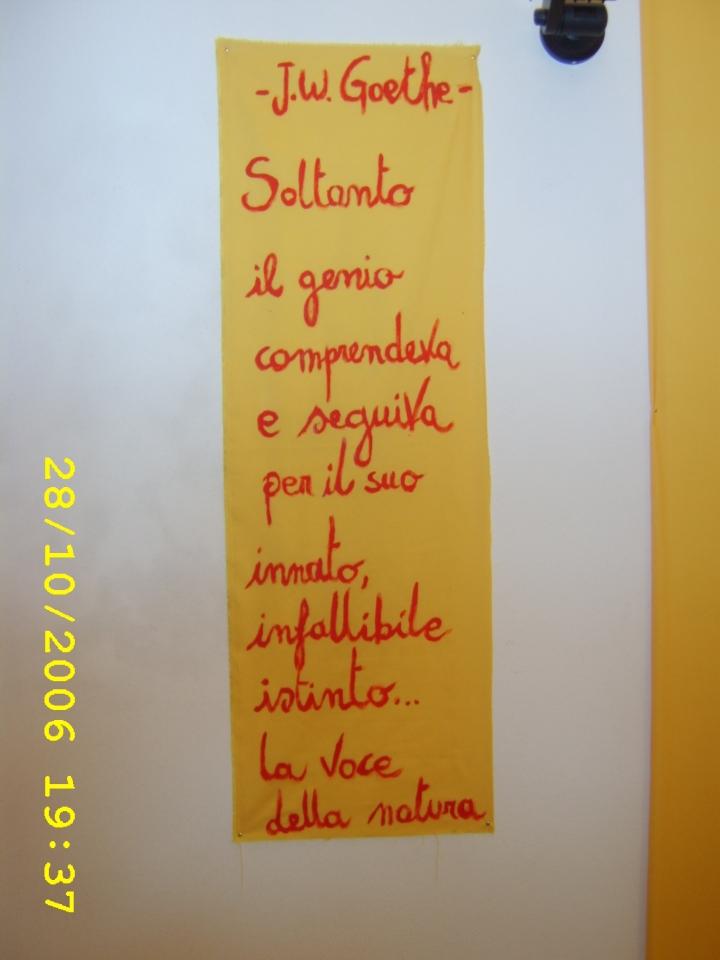 -J.W. Goethe-
Soltanto
il genio
comprendeva
e seguiva
per il suo
innato,
infallibile
istinto...
la voce
della natura
28/10/2006 19:37